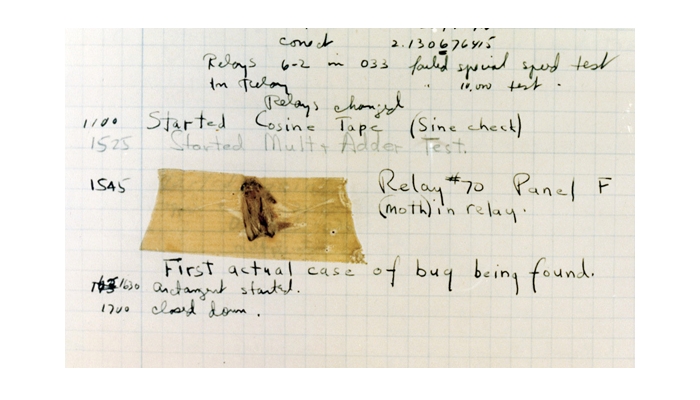 correct 2.130676415
Relays 6-2 in 033 failed special speed test
In Relay " 10.000 test .
Relays changed
1100 Started Cosine Tape (Sine check)
1525 Started Mult + Adder Test.
1545 Relay #70 Panel F
(moth) in relay.
First actual case of bug being found.
1630 antangent started.
1700 closed down.